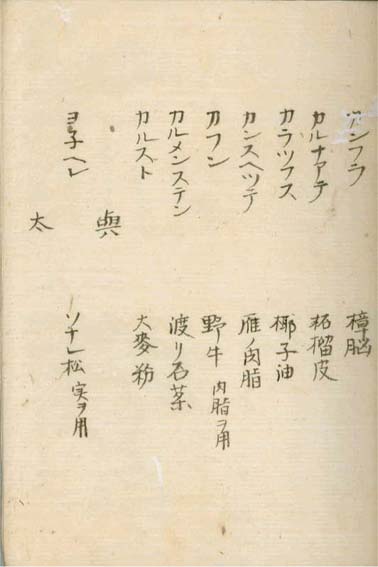 カンフラ 樟脳
カルナアテ 柘榴皮
カラツフス 椰子油
カンスヘツテ 雁ノ肉脂
カフン 野牛 肉脂ヲ用
カルメンステン 渡リ石薬
カルスト 大麥粉
與
ヨ子ヘレ ソナレ松 実ヲ用
太